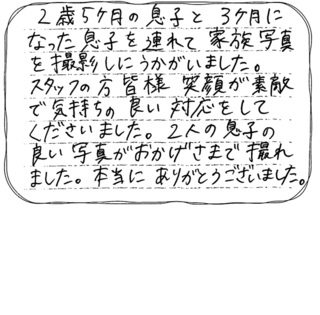 2歳5ケ月の息子と 3ケ月に
なった息子を連れて 家族写真
を撮影しにうかがいました。
スタッフの方皆様 笑顔が素敵
で気持ちの良い対応をして
くださいました。2人の息子の
良い写真がおかげさまで撮れ
ました。本当にありがとうございました。